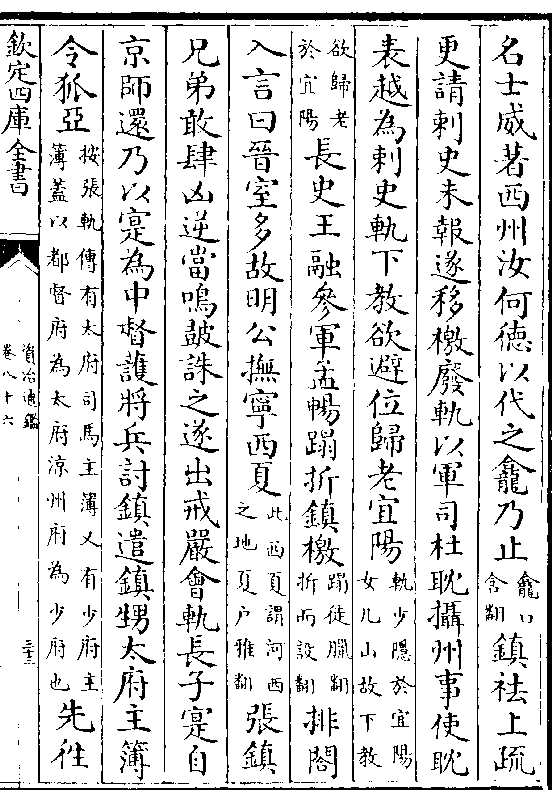 名士威著西州汝何德以代之龕乃止龕口含翻鎮祛上疏
更請刺史未報遂移檄廢軌以軍司杜耽攝州事使耽
表越為刺史軌下教欲避位歸老宜陽軌少隱於宜陽女几山故下教
欲歸老於宜陽長史王融參軍孟暢蹋折鎮檄蹋徒臘翻折而設翻排閤
入言曰晉室多故明公撫寧西夏此西夏謂河西之地夏户雅翻張鎮
兄弟敢肆凶逆當鳴鼓誅之遂出戒嚴會軌長子寔自
京師還乃以寔為中督護將兵討鎮遣鎮甥太府主簿
令狐亞按張軌傳有太府司馬主簿又有少府主簿蓋以都督府為太府涼州府為少府也先往
欽定四庫全書
資治通鑑
卷八十六
三十三